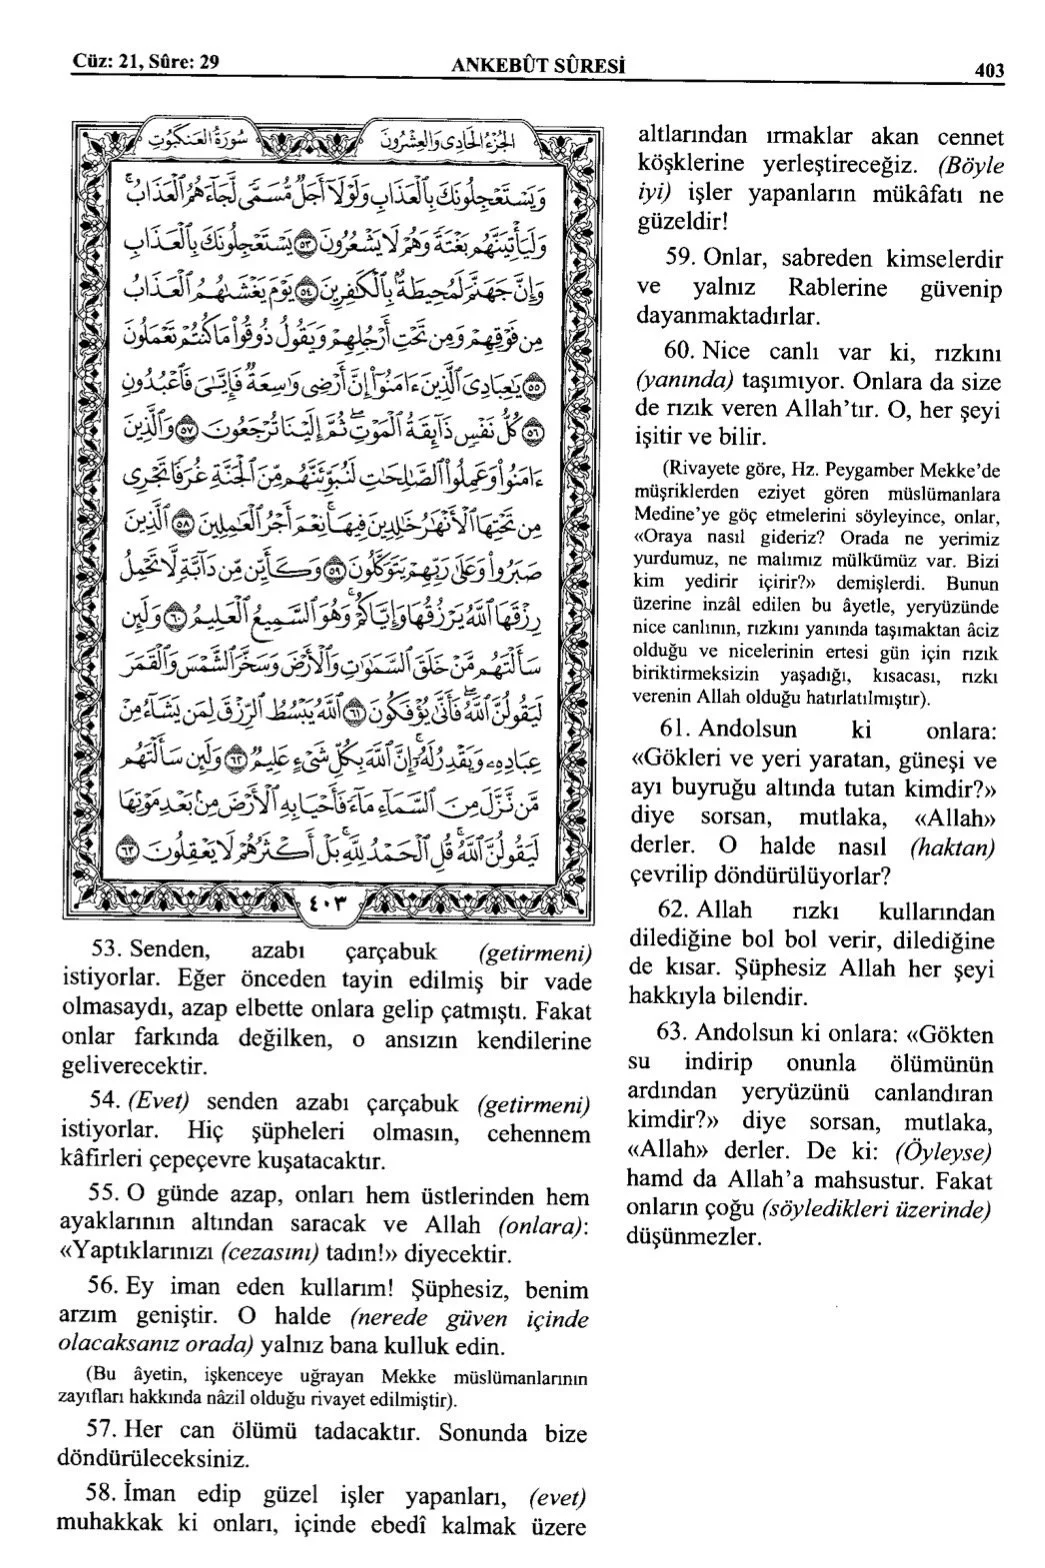 Cüz: 21, Sûre: 29
ANKEBÛT SÛRESİ
403
سُورَةُ العَنكَبُوتِ
الجُزْءُ الحَادِي وَالعِشْرُونَ
وَيَسْتَعْجِلُونَكَ بِالْعَذَابِ وَلَوْلَآ أَجَلٌ مُّسَمًّى لَّجَآءَهُمُ الْعَذَابُ
وَلَيَأْتِيَنَّهُم بَغْتَةً وَهُمْ لَا يَشْعُرُونَ ٥٣ يَسْتَعْجِلُونَكَ بِالْعَذَابِ
وَإِنَّ جَهَنَّمَ لَمُحِيطَةٌ بِالْكَٰفِرِينَ ٥٤ يَوْمَ يَغْشَىٰهُمُ الْعَذَابُ
مِن فَوْقِهِمْ وَمِن تَحْتِ أَرْجُلِهِمْ وَيَقُولُ ذُوقُوا۟ مَا كُنتُمْ تَعْمَلُونَ
٥٥ يَٰعِبَادِيَ الَّذِينَ ءَامَنُوٓا۟ إِنَّ أَرْضِى وَٰسِعَةٌ فَإِيَّٰىَ فَاعْبُدُونِ
٥٦ كُلُّ نَفْسٍ ذَآئِقَةُ الْمَوْتِ ثُمَّ إِلَيْنَا تُرْجَعُونَ ٥٧ وَالَّذِينَ
ءَامَنُوا۟ وَعَمِلُوا۟ الصَّٰلِحَٰتِ لَنُبَوِّئَنَّهُم مِّنَ الْجَنَّةِ غُرَفًا تَجْرِى
مِن تَحْتِهَا الْأَنْهَٰرُ خَٰلِدِينَ فِيهَا نِعْمَ أَجْرُ الْعَٰمِلِينَ ٥٨ الَّذِينَ
صَبَرُوا۟ وَعَلَىٰ رَبِّهِمْ يَتَوَكَّلُونَ ٥٩ وَكَأَيِّن مِّن دَآبَّةٍ لَّا تَحْمِلُ
رِزْقَهَا اللَّهُ يَرْزُقُهَا وَإِيَّاكُمْ وَهُوَ السَّمِيعُ الْعَلِيمُ ٦٠ وَلَئِن
سَأَلْتَهُم مَّنْ خَلَقَ السَّمَٰوَٰتِ وَالْأَرْضَ وَسَخَّرَ الشَّمْسَ وَالْقَمَرَ
لَيَقُولُنَّ اللَّهُ فَأَنَّىٰ يُؤْفَكُونَ ٦١ اللَّهُ يَبْسُطُ الرِّزْقَ لِمَن يَشَآءُ مِنْ
عِبَادِهِۦ وَيَقْدِرُ لَهُۥٓ إِنَّ اللَّهَ بِكُلِّ شَىْءٍ عَلِيمٌ ٦٢ وَلَئِن سَأَلْتَهُم
مَّن نَّزَّلَ مِنَ السَّمَآءِ مَآءً فَأَحْيَا بِهِ الْأَرْضَ مِنۢ بَعْدِ مَوْتِهَا
لَيَقُولُنَّ اللَّهُ قُلِ الْحَمْدُ لِلَّهِ بَلْ أَكْثَرُهُمْ لَا يَعْقِلُونَ ٦٣
٤٠٣
53. Senden, azabı çarçabuk (getirmeni)
istiyorlar. Eğer önceden tayin edilmiş bir vade
olmasaydı, azap elbette onlara gelip çatmıştı. Fakat
onlar farkında değilken, o ansızın kendilerine
geliverecektir.
54. (Evet) senden azabı çarçabuk (getirmeni)
istiyorlar. Hiç şüpheleri olmasın, cehennem
kâfirleri çepeçevre kuşatacaktır.
55. O günde azap, onları hem üstlerinden hem
ayaklarının altından saracak ve Allah (onlara):
«Yaptıklarınızı (cezasını) tadın!» diyecektir.
56. Ey iman eden kullarım! Şüphesiz, benim
arzım geniştir. O halde (nerede güven içinde
olacaksanız orada) yalnız bana kulluk edin.
(Bu âyetin, işkenceye uğrayan Mekke müslümanlarının
zayıfları hakkında nâzil olduğu rivayet edilmiştir).
57. Her can ölümü tadacaktır. Sonunda bize
döndürüleceksiniz.
58. İman edip güzel işler yapanları, (evet)
muhakkak ki onları, içinde ebedî kalmak üzere
altlarından ırmaklar akan cennet
köşklerine yerleştireceğiz. (Böyle
iyi) işler yapanların mükâfatı ne
güzeldir!
59. Onlar, sabreden kimselerdir
ve yalnız Rablerine güvenip
dayanmaktadırlar.
60. Nice canlı var ki, rızkını
(yanında) taşımıyor. Onlara da size
de rızık veren Allah'tır. O, her şeyi
işitir ve bilir.
(Rivayete göre, Hz. Peygamber Mekke'de
müşriklerden eziyet gören müslümanlara
Medine'ye göç etmelerini söyleyince, onlar,
«Oraya nasıl gideriz? Orada ne yerimiz
yurdumuz, ne malımız mülkümüz var. Bizi
kim yedirir içirir?» demişlerdi. Bunun
üzerine inzâl edilen bu âyetle, yeryüzünde
nice canlının, rızkını yanında taşımaktan âciz
olduğu ve nicelerinin ertesi gün için rızık
biriktirmeksizin yaşadığı, kısacası, rızkı
verenin Allah olduğu hatırlatılmıştır).
61. Andolsun ki onlara:
«Gökleri ve yeri yaratan, güneşi ve
ayı buyruğu altında tutan kimdir?»
diye sorsan, mutlaka, «Allah»
derler. O halde nasıl (haktan)
çevrilip döndürülüyorlar?
62. Allah rızkı kullarından
dilediğine bol bol verir, dilediğine
de kısar. Şüphesiz Allah her şeyi
hakkıyla bilendir.
63. Andolsun ki onlara: «Gökten
su indirip onunla ölümünün
ardından yeryüzünü canlandıran
kimdir?» diye sorsan, mutlaka,
«Allah» derler. De ki: (Öyleyse)
hamd da Allah'a mahsustur. Fakat
onların çoğu (söyledikleri üzerinde)
düşünmezler.